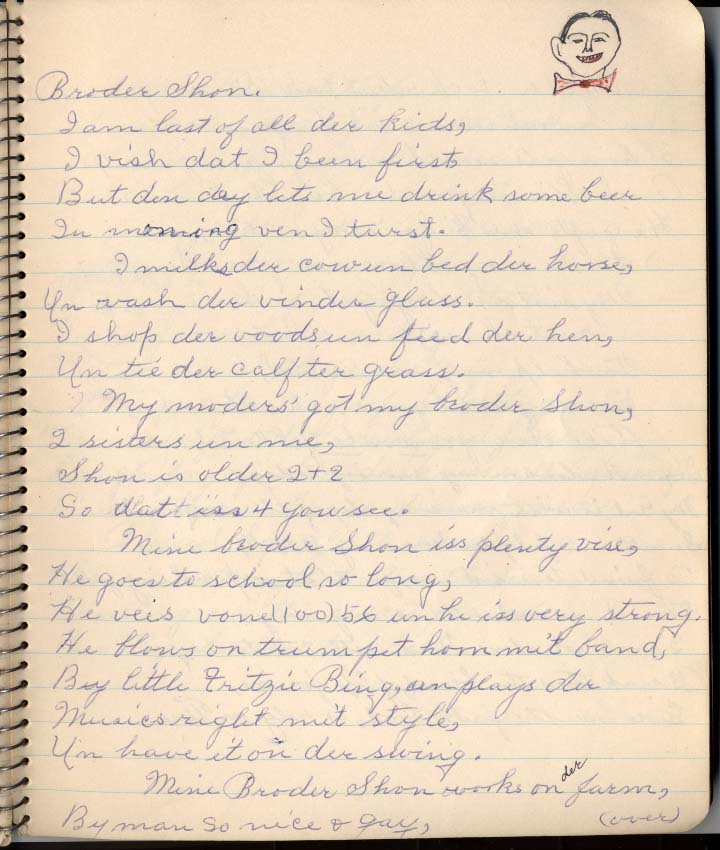 Broder Shon.
I am last of all der kids,
I vish dat I been first
But den dey lets me drink some beer
In morning ven I turst.
I milks der cow un bed der horse,
Un wash der vinder glass.
I shop der voods un feed der hen,
Un tie der calf ter grass.
My moders' got my broder Shon,
2 sisters un me,
Shon is older 2+2
So datt iss 4 you see.
Mine broder Shon iss plenty vise,
He goes to school so long,
He veis vone (100) 56 un he iss very strong.
He blows on trumpet horn mit band,
By little Fritzie Bing, un plays der
Musics right mit style,
Un have it on der swing.
Mine Broder Shon works on der farm,
By man so nice & gay,
(over)